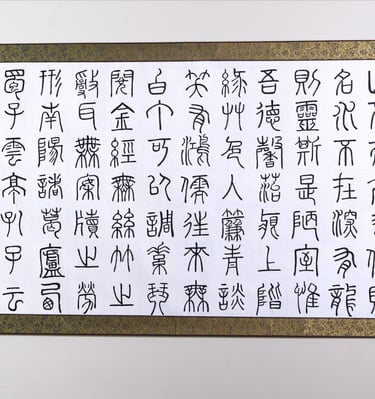 名水不在深有龍
則靈斯是陋室惟
吾德馨苔痕上階
綠艸色入簾青談
笑有鴻儒往來無
白丁可以調素琴
閱金經無絲竹之
亂耳無案牘之勞
形南陽諸葛廬西
蜀子雲亭孔子云